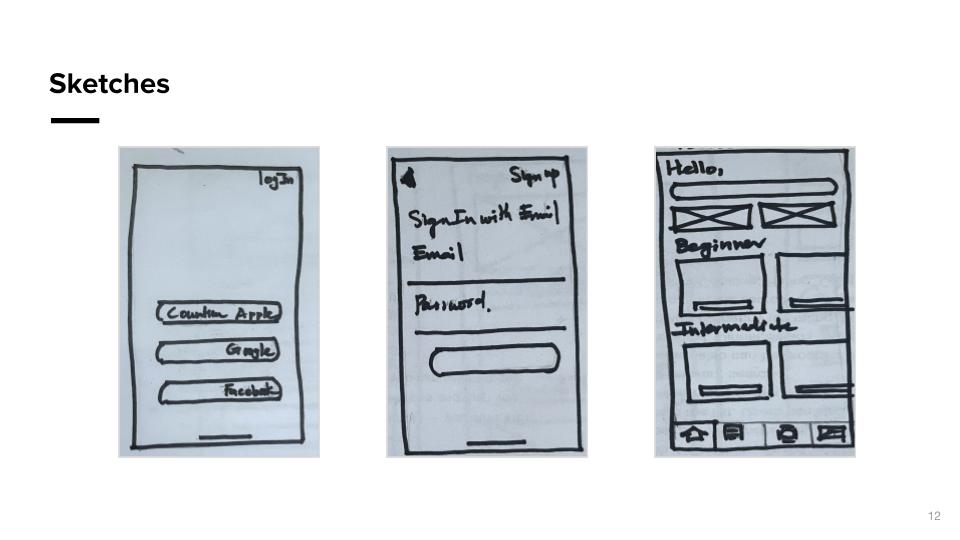 Sketches
logIn
Apple
Google
Facebook
Sign up
Sign In with Email
Email
Password.
Hello,
Beginner
Intermediate
12